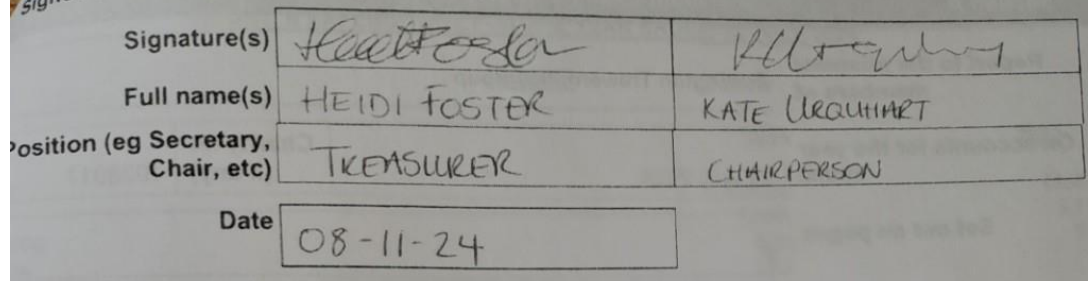 Signature(s)
Full name(s) HEIDI FOSTER KATE URQUHART
Position (eg Secretary, Chair, etc) TREASURER CHAIRPERSON
Date 08-11-24